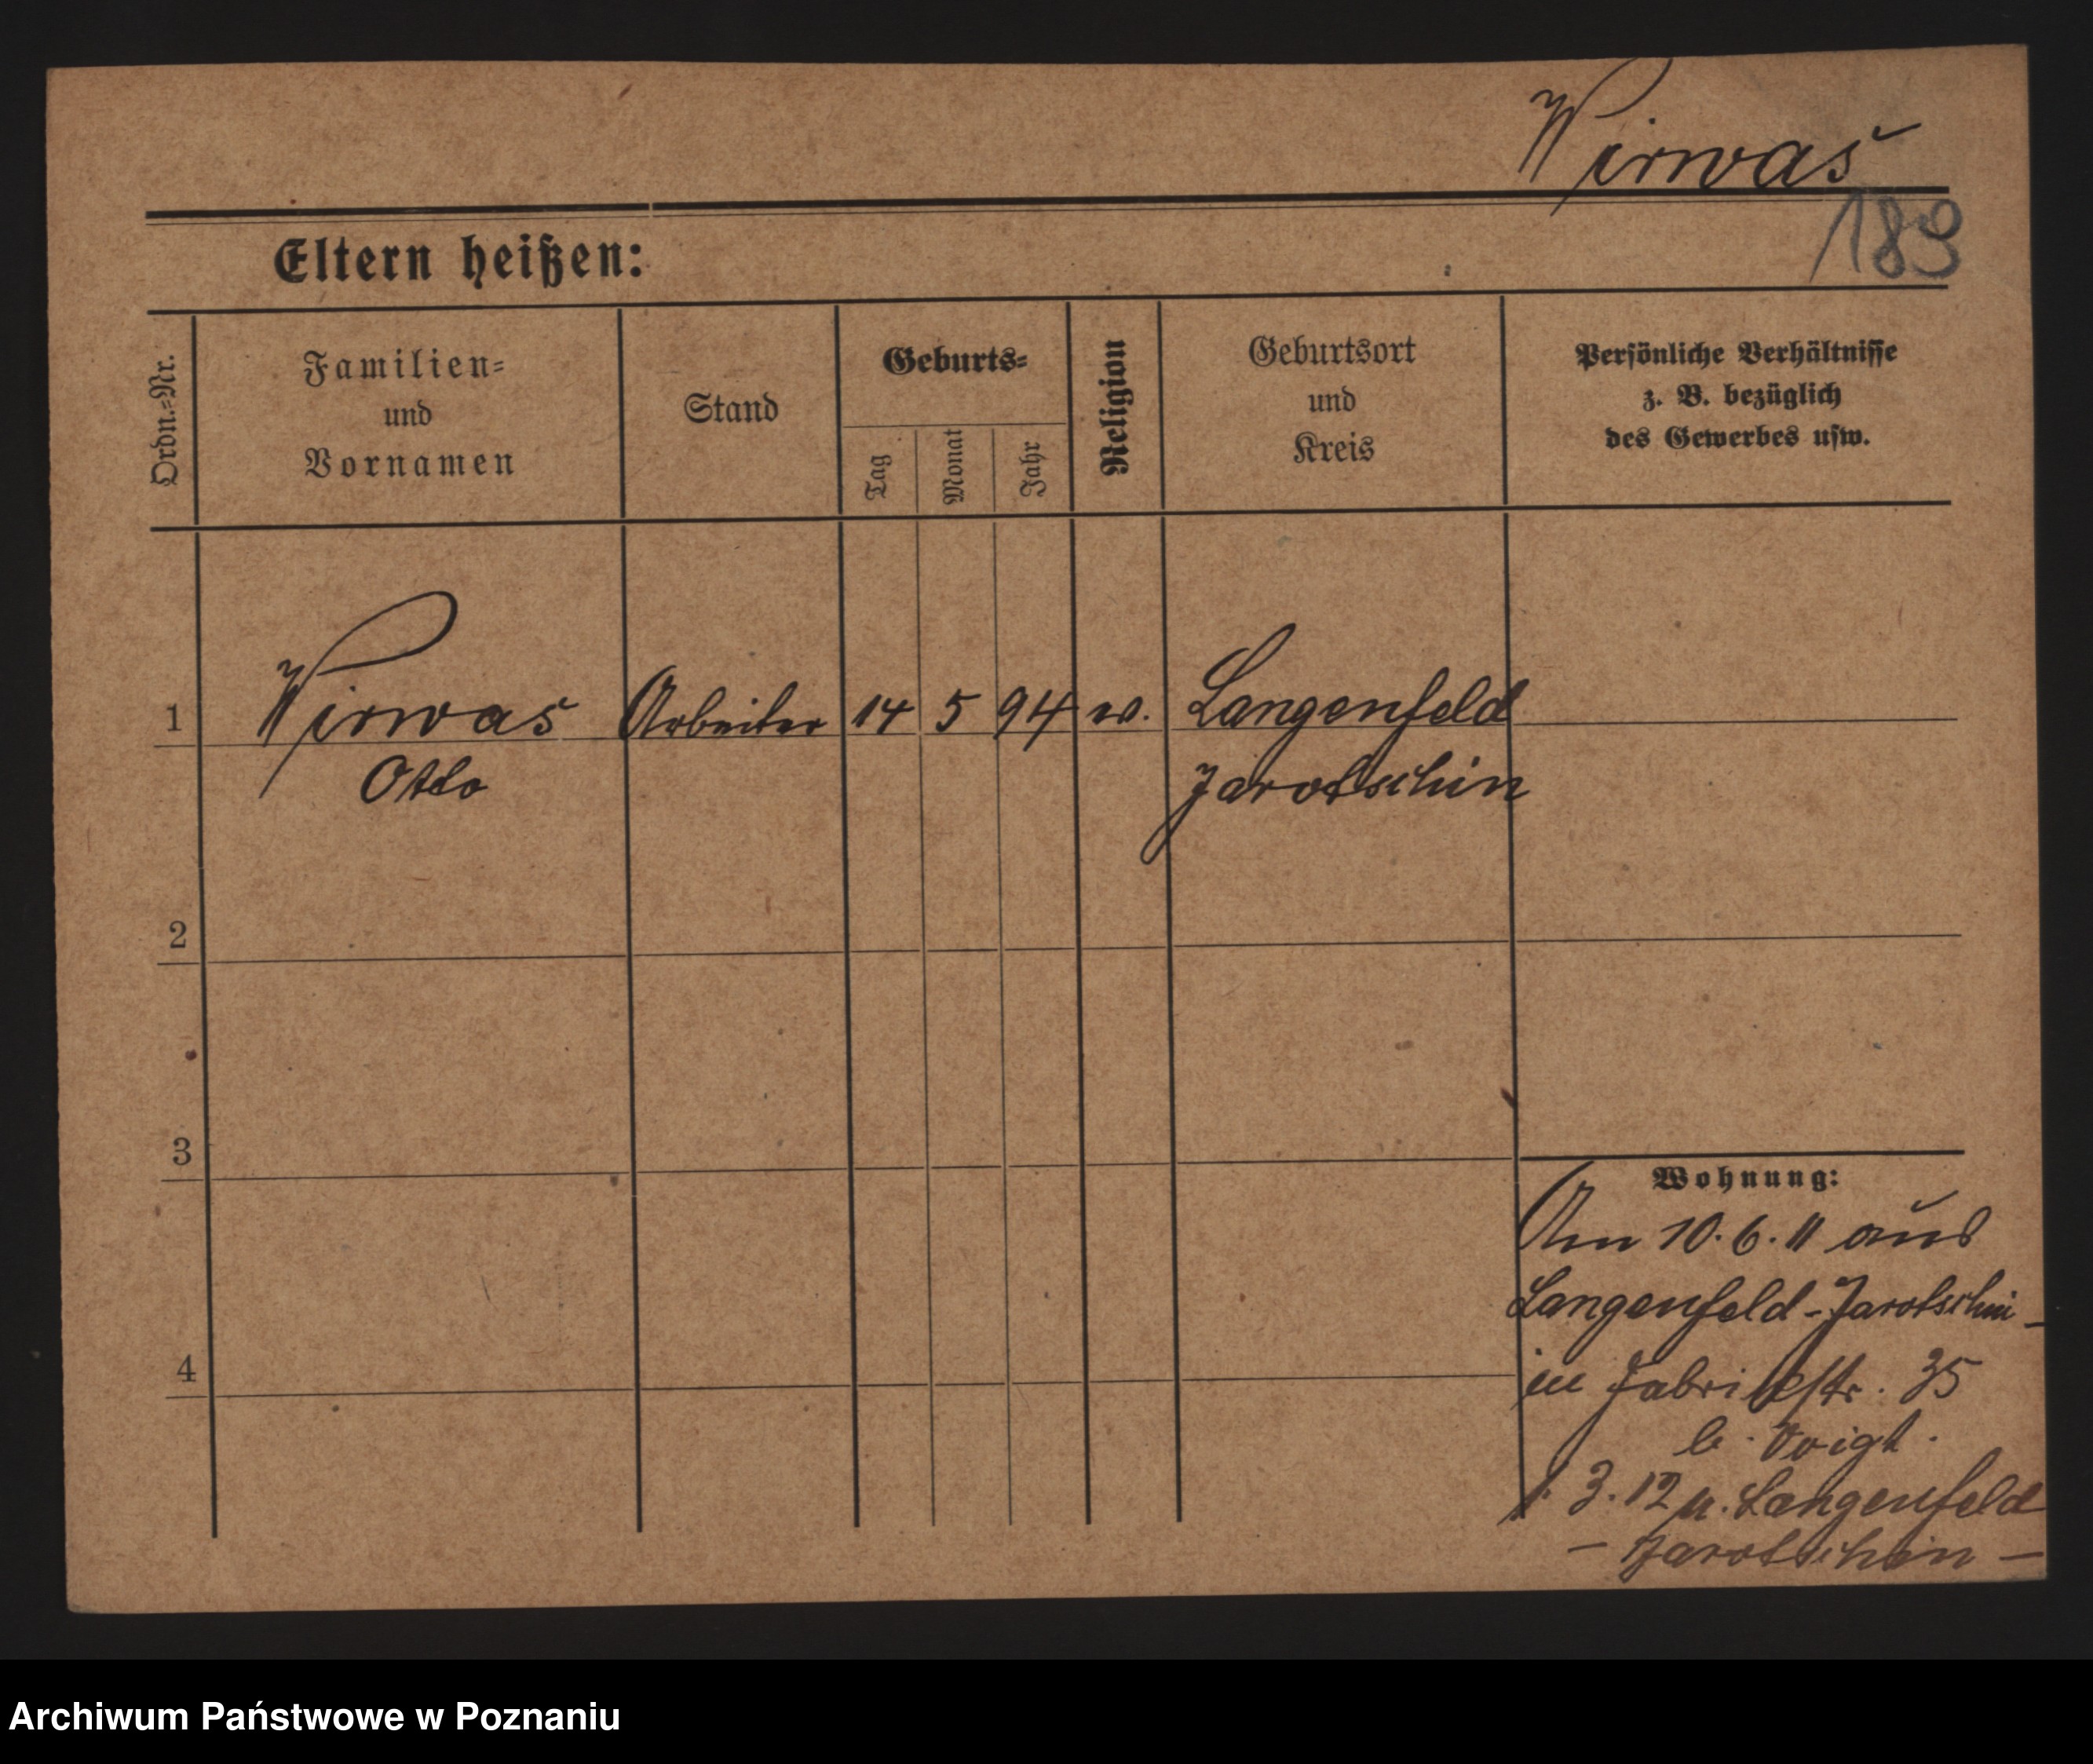 Wirwas
189
Eltern heißen:
Ordn.=Nr.
Familien=
und
Vornamen
Stand
Geburts=
Tag
Monat
Jahr
Religion
Geburtsort
und
Kreis
Persönliche Verhältnisse
z. B. bezüglich
des Gewerbes usw.
1 Wirwas Arbeiter 14 5 94 Langenfeld
Otto Jarotschin
2
3
4
Wohnung:
Am 10.6.11 aus
Langenfeld-Jarotschin-
in Fabrikstr. 35
b. Voigt.
1.3.12 n. Langenfeld
- Jarotschin -
Archiwum Państwowe w Poznaniu